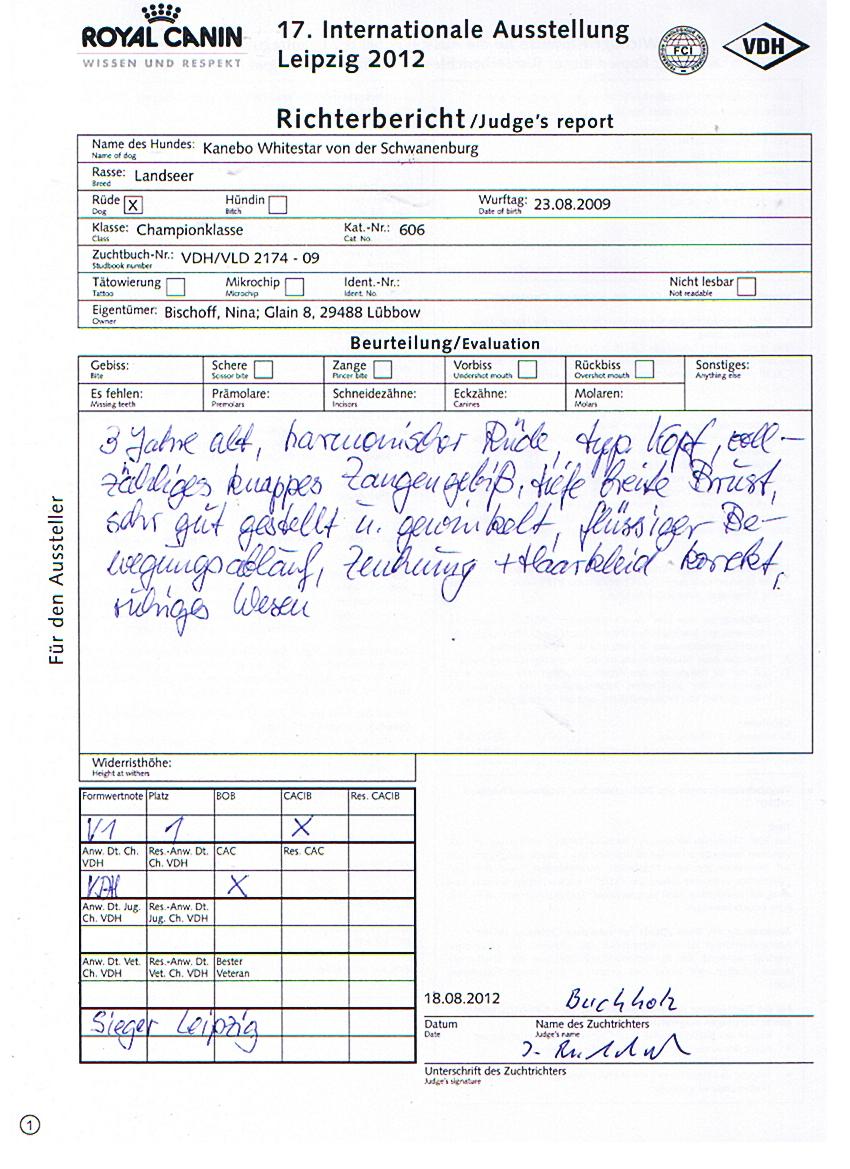 ROYAL CANIN
WISSEN UND RESPEKT
17. Internationale Ausstellung
Leipzig 2012
FCI
VDH
Richterbericht /Judge's report
Name des Hundes: Kanebo Whitestar von der Schwanenburg
Name of dog
Rasse: Landseer
Breed
Rüde X Hündin Wurftag: 23.08.2009
Dog Bitch Date of birth
Klasse: Championklasse Kat.-Nr.: 606
Class Cat No.
Zuchtbuch-Nr.: VDH/VLD 2174 - 09
Studbook number
Tätowierung Mikrochip Ident.-Nr.: Nicht lesbar
Tattoo Microchip Ident. No. Not readable
Eigentümer: Bischoff, Nina; Glain 8, 29488 Lübbow
Owner
Beurteilung/Evaluation
Gebiss: Schere Zange Vorbiss Rückbiss Sonstiges:
Bite Scissor bite Pincer bite Undershot mouth Overshot mouth Anything else
Es fehlen: Prämolare: Schneidezähne: Eckzähne: Molaren:
Missing teeth Premolars Incisors Canines Molars
3 Jahre alt, harmonischer Rüde, typ. Kopf, voll-
zähliges knappes Zangengebiß, tiefe breite Brust,
sehr gut gestellt u. gewinkelt, flüssiger Be-
wegungsablauf, Zeichnung + Haarkleid korrekt,
ruhiges Wesen
Für den Aussteller
Widerristhöhe:
Height at withers
Formwertnote Platz BOB CACIB Res. CACIB
V1 1 X
Anw. Dt. Ch. VDH Res.-Anw. Dt. Ch. VDH CAC Res. CAC
VDH X
Anw. Dt. Jug. Ch. VDH Res.-Anw. Dt. Jug. Ch. VDH
Anw. Dt. Vet. Ch. VDH Res.-Anw. Dt. Vet. Ch. VDH Bester Veteran
Sieger Leipzig
18.08.2012 Buchholz
Datum Name des Zuchtrichters
Date Judge's name
Unterschrift des Zuchtrichters
Judge's signature
1